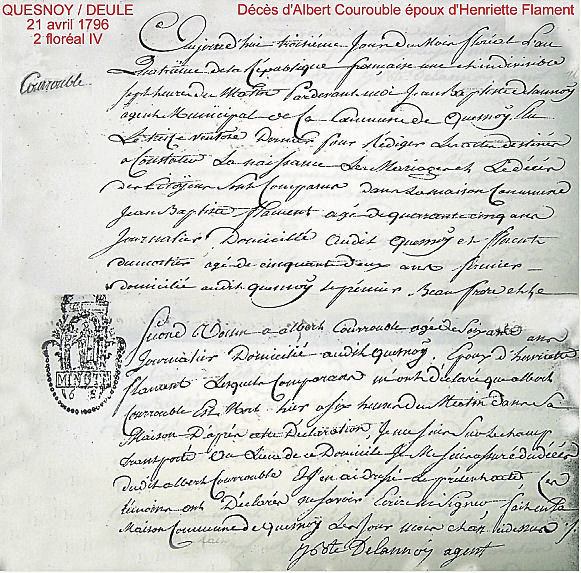 QUESNOY / DEULE
21 avril 1796
2 floréal IV
Décès d'Albert Courouble époux d'Henriette Flament
Courrouble
Aujourd'hui troisieme Jour du Mois floréal L'an
quatrieme de la République française une et indivisible
sept heures du Matin Pardevant moi Jean Baptiste Delannoy
agent Municipal de la Commune de Quesnoy Elu
Le treize ventose Dernier pour Rédiger Les actes destinés
a Constater La naissance Les Mariages et Le décès
des Citoyens Sont Comparus Dans La maison Commune
Jean Baptiste flament agé de quarante cinq ans
Journalier Domicillé audit Quesnoy et
agé de cinquant deux ans fermier
domicilié audit quesnoy Le premier Beau frere et Le
Second Voisin a albert Courrouble agé de Soixante ans
Journalier Domicilié audit Quesnoy. Epoux d'henriette
flament Lesquels Comparans m'ont déclaré que albert
Courrouble Est Mort hier a six heures du Mattin Dans Sa
Maison D'après cette Déclaration, Je me suis Sur Le champ
transporté au Lieu de ce Domicile Je Me suis assuré du décès
dudit albert Courrouble Et J'en ai dressé Le présent acte Les
témoins ont Déclarés ne savoir Ecrire ni Signer fait en La
Maison Commune de Quesnoy Les Jour mois et an cidessus
jbte Delannoy agent
MINUTE